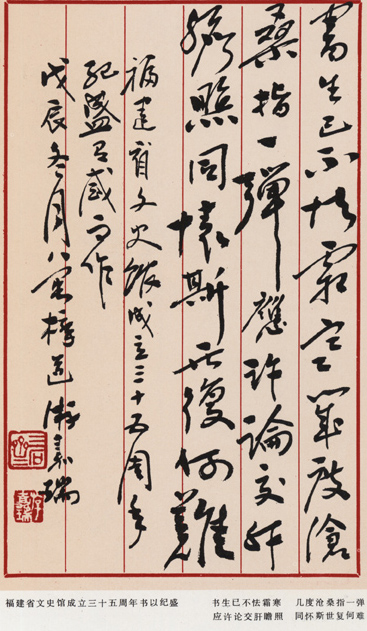 書生已不怯霜寒幾度滄
桑指一彈應許論交肝
膽照同懷斯世復何難
福建省文史館成立三十五周年
紀盛有感而作
戊辰冬月游嘉瑞
福建省文史馆成立三十五周年书以纪盛
书生已不怯霜寒 几度沧桑指一弹
应许论交肝瞻照 同怀斯世复何难